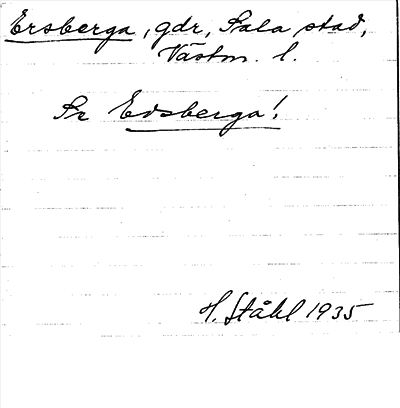 Ersberga, gdr, Sala stad,
Västm. l.
Se Edsberga!
H. Ståhl 1935